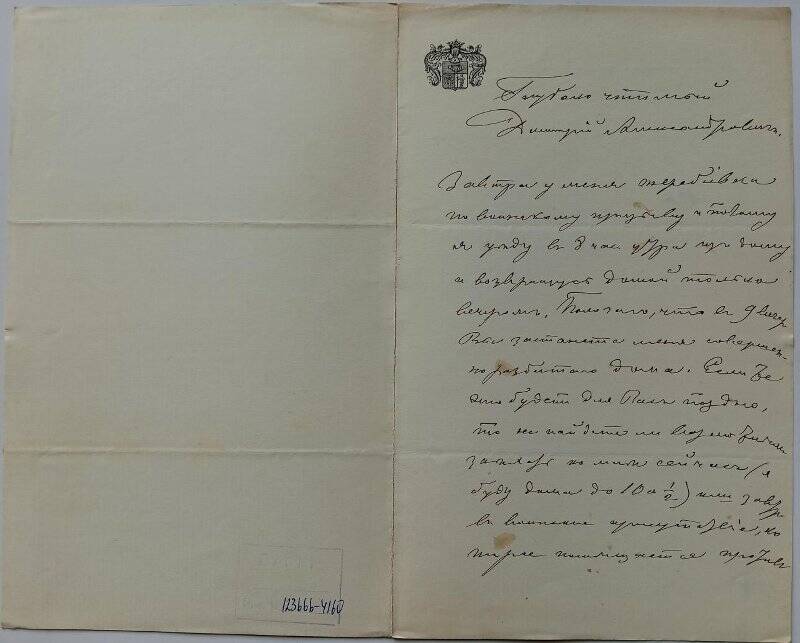 Глубоко чтимый
Дмитрій Александровичъ.
Завтра у меня жеребьевка
по воинскому и потому
я уйду въ 8 час утра изъ дому
и возвращусь домой только
вечеромъ. Полагаю, что въ 9 вечер
Вы застанете меня совершен-
но разбитаго дома. Если же
это будетъ для Васъ поздно,
то не найдете ли возможнымъ
заѣхать ко мнѣ сейчасъ (я
буду дома до 10 а ½) или завтра
въ воинское присутствіе, ко
торое помещается противъ
123666-4160